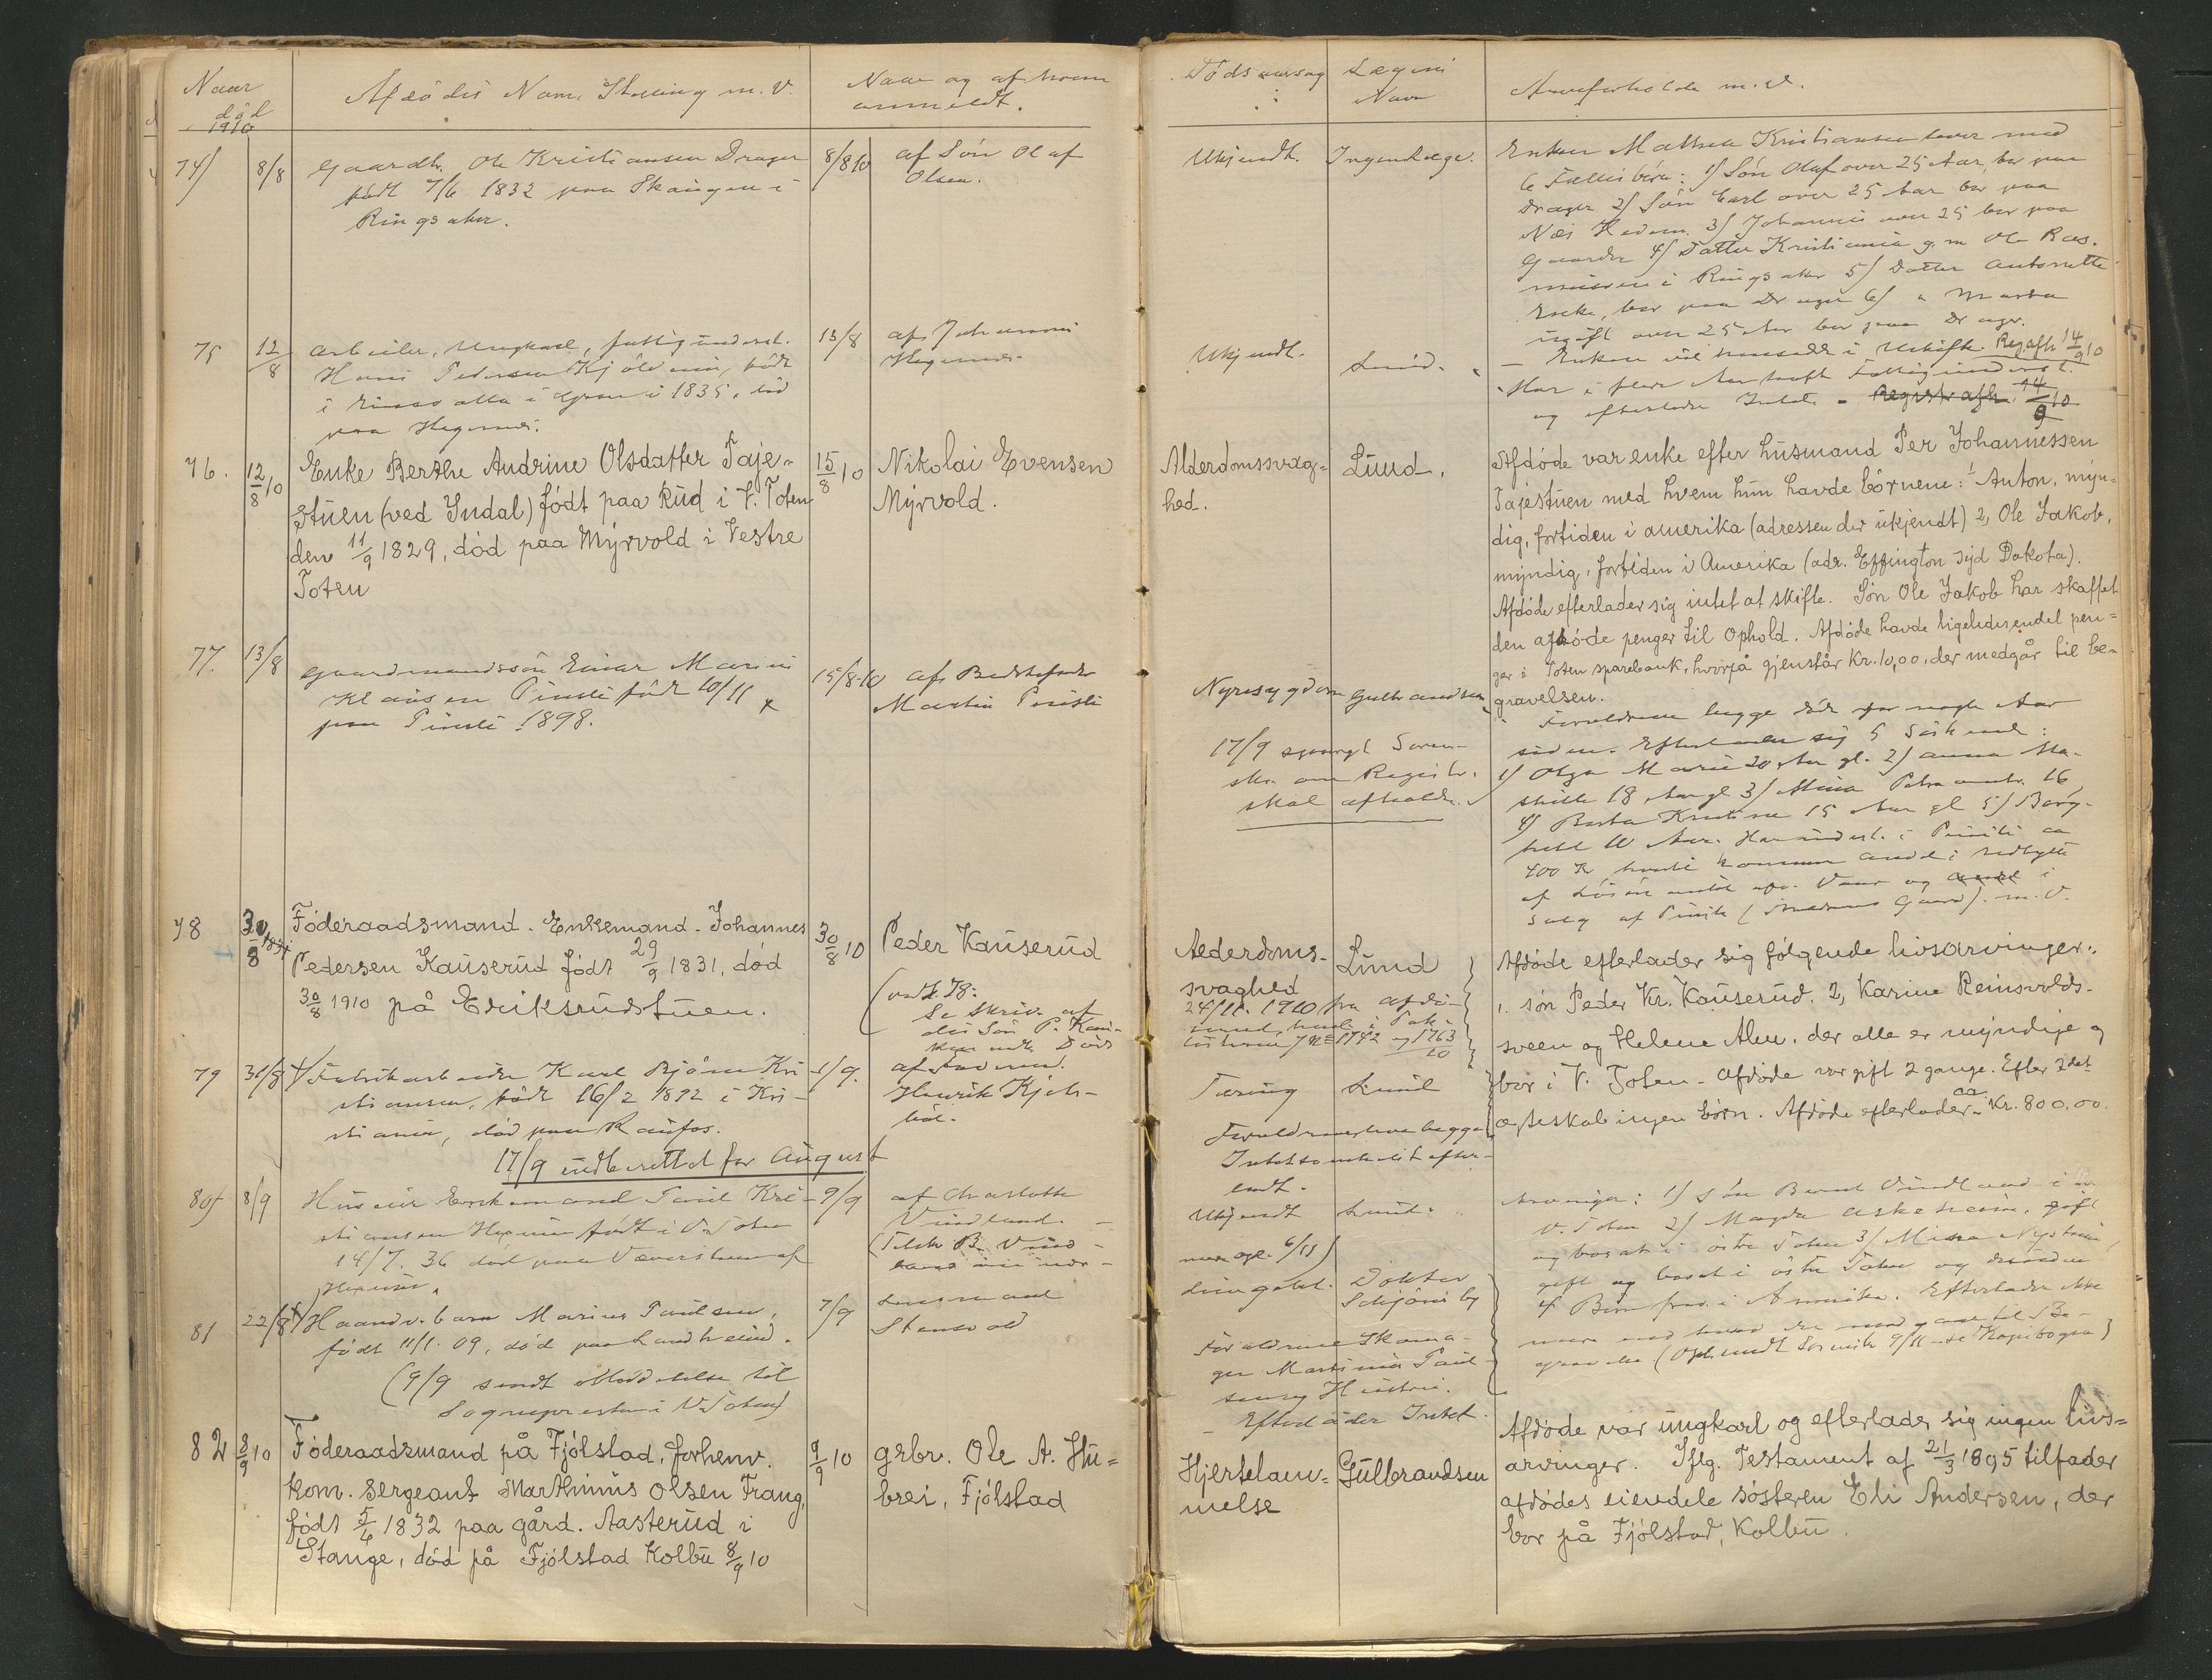 Naar
død
1910
Afdødes Navn, Stilling m. V.
Naar og af hvem
anmeldt.
Dødsaarsag
Lægens
Navn
Arveforholde m. v.
74)
8/8
Gaardbr. Ole Kristiansen Drager
født 7/6 1832 paa Skaugen i
Ringsaker.
8/8 10
af Søn Olaf
Olsen.
Ukjendt.
Ingen Læge.
Enken Mathea Kristiansen lever med
6 Fællesbørn: 1) Søn Olaf over 25 Aar, bor paa
Drager 2) Søn Carl over 25 Aar bor paa
Næs Hedem. 3) Johannes over 25 bor paa
Gaarder 4) Datter Kristiania g. m. Ole Ras-
mussen i Ringsaker 5) Datter Antonette
Enke, bor paa Drager 6) " Marta
ugift over 25 Aar bor paa Drager.
Enken vil hensidde i Uskifte. Reg. afh 14/9 10
75
12/8
Arbeider, Ungkarl, fattigunderst.
Hans Pedersen, født
i Gran i 1835, død
paa Hagernæs.
13/8
af Johannes
Hagernæs.
Ukjendt.
Lund.
Har i flere Aar havt Fattigunderst.
og efterlader Intet. - Registr afh. 14/9 10
76.
12/8 10
Enke Berthe Andrine Olsdatter Taje-
stuen (ved Yndal) født paa Rud i V. Toten
den 11/9 1829, død paa Myrvold i Vestre
Toten
15/8 10
Nikolai Evensen
Myrvold.
Alderdomssvag=
hed.
Lund.
Afdøde var enke efter husmand Per Johannessen
Tajestuen med hvem hun havde børnene: 1 Anton, myn-
dig, fortiden i amerika (adressen der ukjendt) 2, Ole Jakob,
myndig, fortiden i Amerika (adr. Effington syd Dakota).
Afdøde efterlader sig intet at skifte. Søn Ole Jakob har skaffet
den afdøde penger til ophold. Afdøde havde ligeledes endel pen=
ger i Toten sparebank, hvorpå gjenstår Kr. 10,00, der medgår til be-
gravelsen.
77.
13/8
Gaardmandssøn Einar Marius
Klausen Pinsli født 10/11
paa Pinsli 1898.
15/8-10
af Bedstefader
Martin Pinsli
Nyresygdom
Gulbrandsen
17/9 spurgt Soren-
skr. om Registr.
skal afholdes.
Forældrene begge døde for nogle Aar
siden. Efterlader sig 5 Søskende:
1) Olga Marie 20 Aar gl. 2) Anna Ma-
thilde 18 Aar gl 3) Mina Petra 16,
4) Berta Kristine 15 Aar gl 5) Borg-
hild 10 Aar. Har indest. i Pinsli ca
400 Kr, hvortil kommer andel i Udbytte
af Løsøre og i
Salg af Pinsli m. V.
78
30/8
Føderaadsmand - Enkemand - Johannes
Pedersen Kauserud født 29/9 1831, død
30/8 1910 på Eriksrudstuen.
30/8 10
Peder Kauserud
(vedk. 78:
Se skriv. af
des Søn P. Kau-
Alderdoms-
svaghed
Lund
24/11. 1910 fra afdø-
Afdøde efterlader sig følgende livsarvinger:
1. søn Peder Kr. Kauserud. 2, Karine Reinsvolds-
sveen og Helene Alm. der alle er myndige og
bor i V. Toten - Afdøde var gift 2 gange. Efter 2det
ægteskab ingen børn. Afdøde efterlader ca. Kr. 800,00.
79
31/8
Fabrikarbeider Karl Bjørn Kri-
stiansen, født 16/2 1892 i Kri-
stiania, død paa Raufos.
1/9.
af
Henrik Kjels-
Tæring
Lund
Forældrene leve begge
Intet efter-
ladt.
17/9 indberettet for August
80)
8/9
Huseier Enkemand Paul Kri-
stiansen født i V. Toten
14/7. 36 død paa
9/9
af Charlotte
Vindland
Ukjendt
Lund.
Arvinger: 1) Søn Bernt Vindland i
V. Toten 2) Magda Askeheim, gift
og bosat i østre Toten 3) Mina Nystuen,
gift og bosat i østre Toten og desuden
4 Børn i Amerika. Efterlader ikke
mere end hvad der medgaar til Be-
gravelse
81
22/8
Haandv. barn Marius Paulsen,
født 11/1. 09, død paa Landheim.
(9/9 sendt Meddelelse til
Sognepresten i V. Toten)
7/9
Lensmand
Stensvold
Doktor
Schjøneby
Forældrene Skoma-
ger Martinius Paul-
sen og Hustru.
Efterlader Intet.
82
8/9 10
Føderaadsmand på Fjølstad, forhenv.
kom. sergeant Marthinius Olsen Frang,
født 5/6 1832 paa gård. Aasterud i
Stange, død på Fjølstad Kolbu 8/9 10
9/9 10
grbr. Ole A. Hu=
brei, Fjølstad
Hjertelam=
melse
Gulbrandsen
Afdøde var ungkarl og efterlader sig ingen livs=
arvinger. Iflg. Testament af 21/3 1895 tilfader
afdødes eiendele søsteren Eli Andersen, der
bor på Fjølstad, Kolbu.